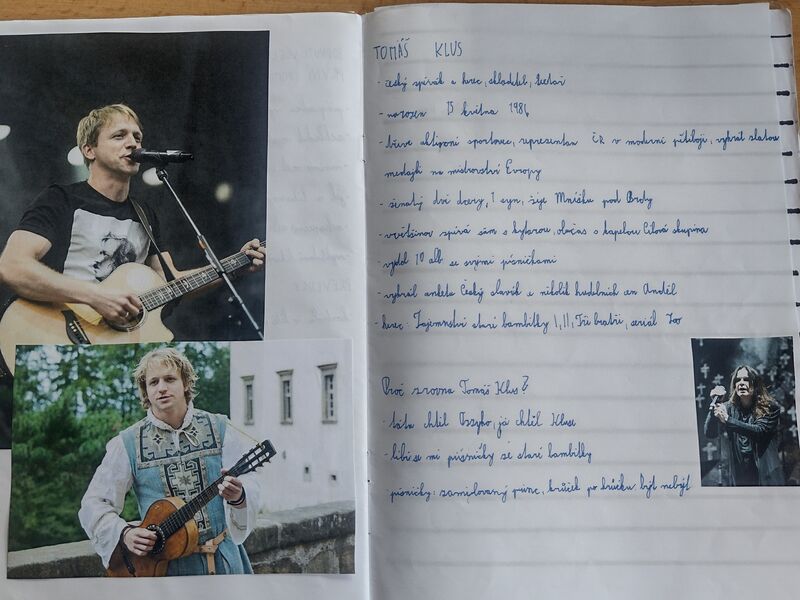 TOMÁŠ KLUS
- český zpívák a herec, skladatel, textař
- narozen 15 května 1986
- bývá aktivní sportovec, reprezentan ČR v moderní pětiboji, vyhrát zlatou
medajli na mistrovství Evropy
- ženatý dvě dcery, 1 syn, žije Mníšku pod Brdy
- většinov zpívá sám s kytarou, občas s kapelou Cílová skupina
- vydal 10 alb se svými písničkami
- vyhrál anketa Český slavík a několik hudebních cen Anděl
- herec: Tajemnství staré bambitky I, II, Tři bratři, seriál Zoo
Proč zrovna Tomáš Klus?
- táta chtěl Ozzyho já chtěl Kluse
- líbí se mi písničky ze staré bambitky
písničky: zamilovaný pane, krůček po krůčku, být nebýt